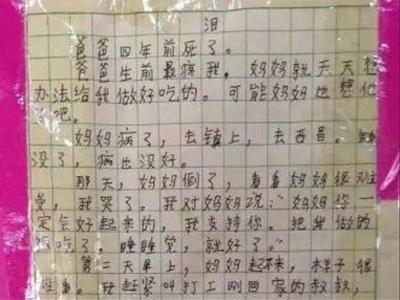 泪
爸爸四年前死了。
爸爸生前最疼我。妈妈就天天想
办法给我做好吃的。可能妈妈也想他
了吧。
妈妈病了，去镇上，去西昌。
没了，病也没好。
那天，妈妈倒了，看看妈妈很难
受，我哭了。我对妈妈说："妈妈你一
定会好起来的，我支持你。把我做的
饭吃了，睡睡觉，就好了。"
第二天早上，妈妈起不来，样子很
难看。我赶紧叫打工刚回家的叔叔，